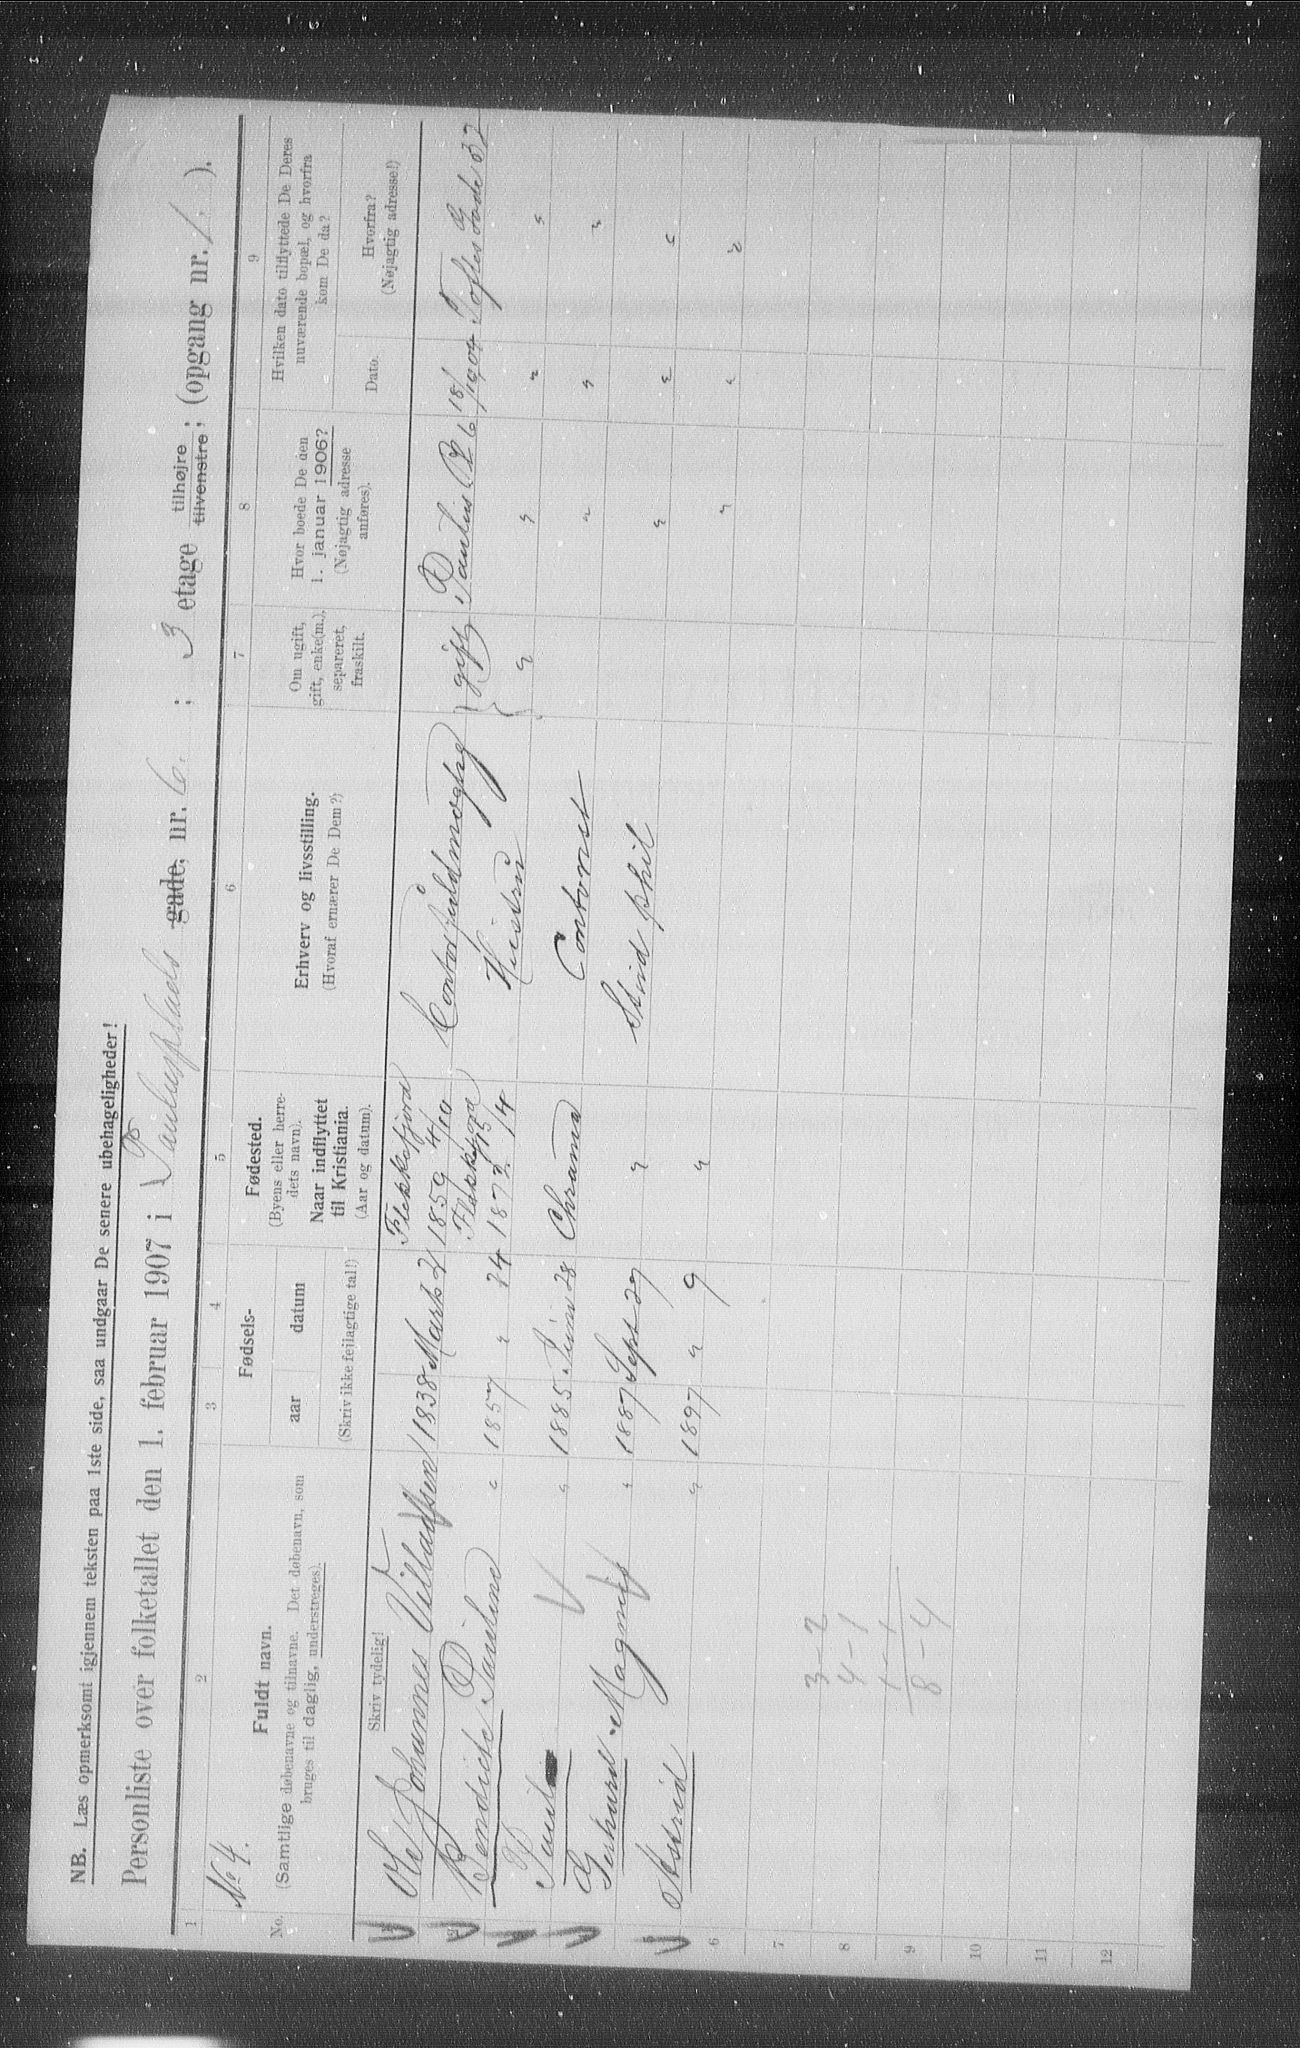 NB. Læs opmerksomt igjennem teksten paa 1ste side, saa undgaar De senere ubehageligheder!
Personliste over folketallet den 1. februar 1907 i Paulusplads gade, nr. 6. ; 3 etage tilhøjre tilvenstre; (opgang nr. 1. ).
1 2 3 4 5 6 7 8 9
No 4.
No.
Fuldt navn.
(Samtlige døbenavne og tilnavne. Det døbenavn, som
bruges til daglig, understreges).
Skriv tydelig!
Fødsels-
aar datum
(Skriv ikke fejlagtige tal!)
Fødested.
(Byens eller herre-
dets navn).
Naar indflyttet
til Kristiania.
(Aar og datum).
Erhverv og livsstilling.
(Hvoraf ernærer De Dem?)
Om ugift,
gift, enke(m.),
separeret,
fraskilt.
Hvor boede De den
1. januar 1906?
(Nøjagtig adresse
anføres).
Hvilken dato tilflyttede De Deres
nuværende bopæl, og hvorfra
kom De da?
Dato.
Hvorfra?
(Nøjagtig adresse!)
1 Ole Johannes Villadssen 1838 Marts 21 Flekkefjord 1859 4/10 Contorfuldmægtig gift Paulus Pl 6 18/ 1904 Toftes Gade 37
2 Bendicte Pauline " 1857 " 24 Flekkefjord 1872 15/4 Hustru " " " "
Paul " 1885 Juni 28 Chrania Contorist " " "
Gerhard Magnus " 1887 Sept 27 " Stud phil " " "
5 Astrid " 1897 " 9 " " " "
6
7
8
9
10
11
12
3-2
4-1
1-1
8-4